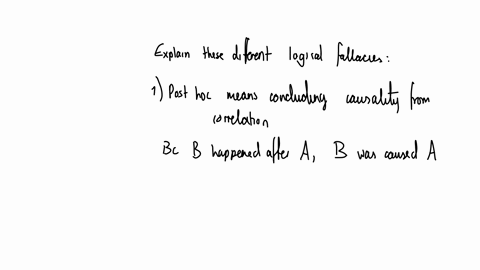 Explain these different logical fallacies:
1) Post hoc means concluding causality from
correlation
Bc B happened after A, B was caused A